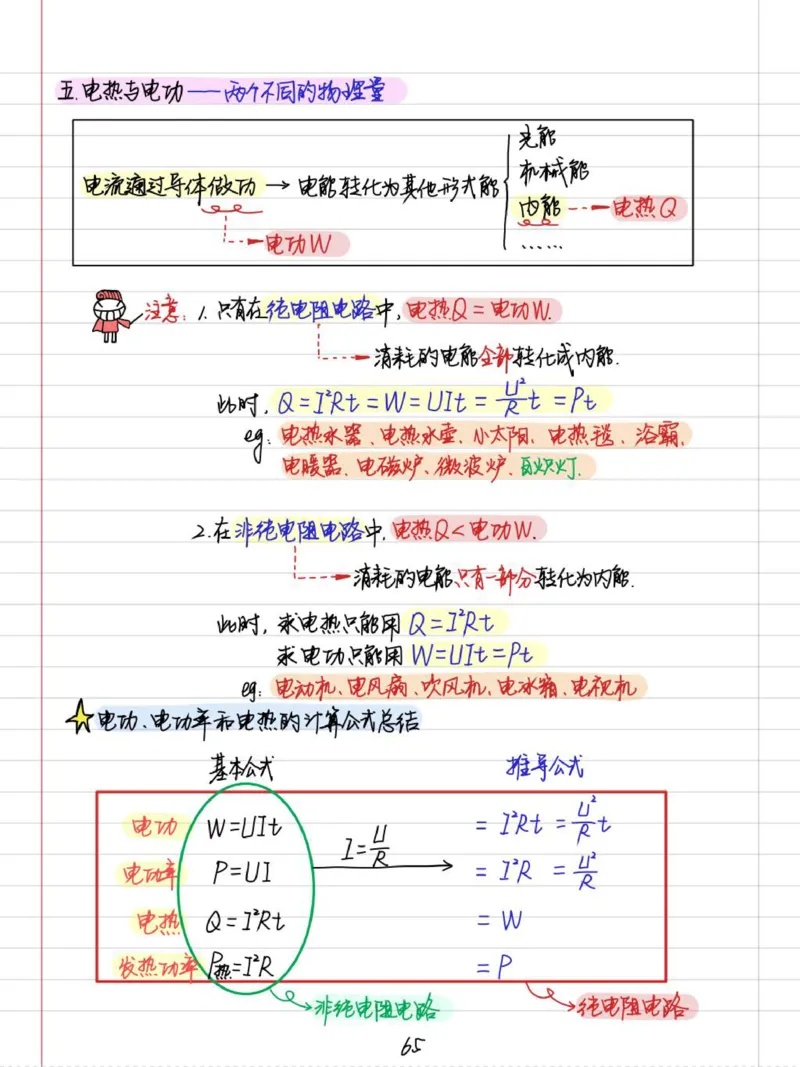 五.电热与电功——两个不同的物理量
电流通过导体做功→电能转化为其他形式能
光能
机械能
内能→电热Q
……
电功W
注意:1.只有在纯电阻电路中,电热Q=电功W.
消耗的电能全部转化成内能.
此时,Q=I²Rt=W=UIt=U²/Rt=Pt
eg:电热水器、电热水壶、小太阳、电热毯、浴霸、
电暖器、电磁炉、微波炉、白炽灯.
2.在非纯电阻电路中,电热Q<电功W.
消耗的电能只有一部分转化为内能.
此时,求电热只能用Q=I²Rt
求电功只能用W=UIt=Pt
eg:电动机、电风扇、吹风机、电冰箱、电视机
电功、电功率和电热的计算公式总结
基本公式 推导公式
电功 W=UIt =I²Rt=U²/Rt
I=U/R
电功率 P=UI =I²R=U²/R
电热 Q=I²Rt =W
发热功率 P热=I²R =P
非纯电阻电路 纯电阻电路
65